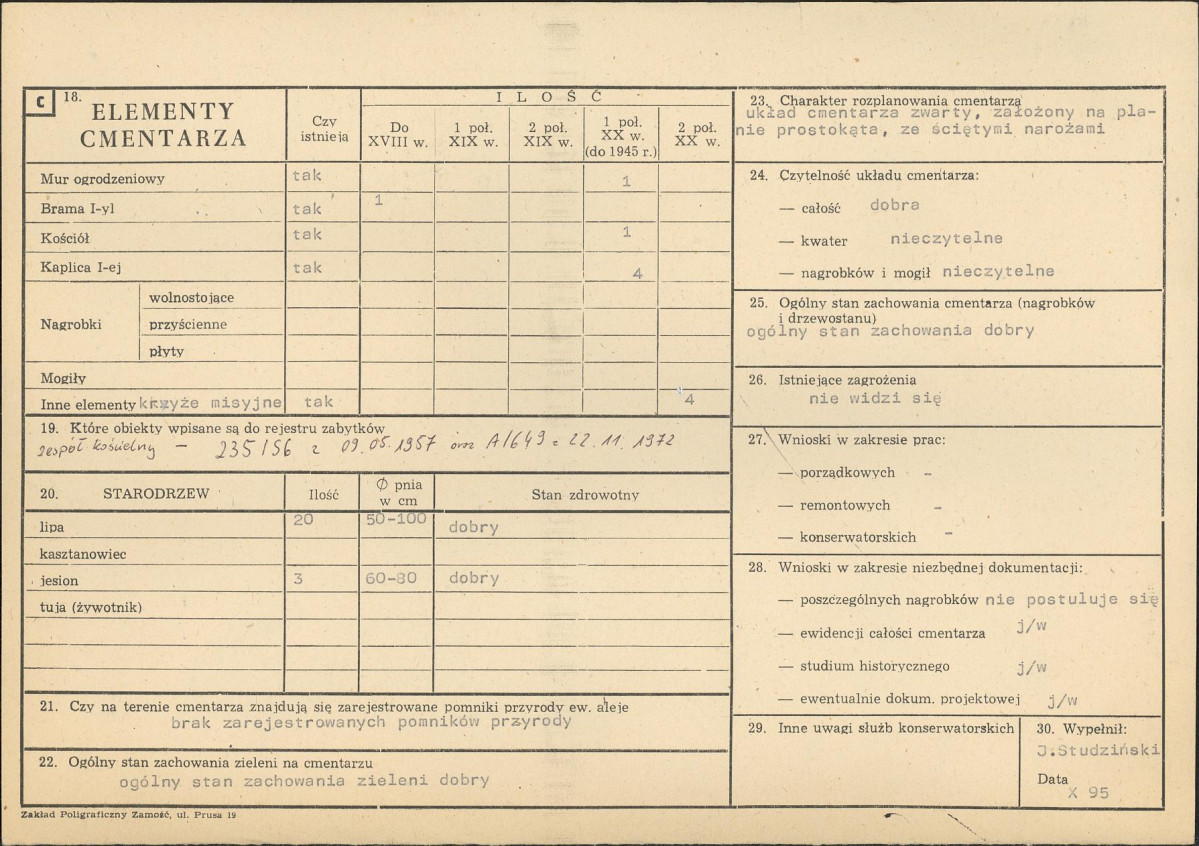 C
18. ELEMENTY CMENTARZA
Czy istnieją
ILOŚĆ
Do XVIII w.
1 poł. XIX w.
2 poł. XIX w.
1 poł. XX w. (do 1945 r.)
2 poł. XX w.
Mur ogrodzeniowy tak 1
Brama I-yl tak 1
Kościół tak 1
Kaplica I-ej tak 4
Nagrobki
wolnostojące
przyścienne
płyty
Mogiły
Inne elementy krzyże misyjne tak 4
19. Które obiekty wpisane są do rejestru zabytków
zespół kościelny — 235/56 z 09.05.1957 oraz A/649 z 22.11.1972
20. STARODRZEW Ilość Ø pnia w cm Stan zdrowotny
lipa 20 50-100 dobry
kasztanowiec
jesion 3 60-80 dobry
tuja (żywotnik)
21. Czy na terenie cmentarza znajdują się zarejestrowane pomniki przyrody ew. aleje
brak zarejestrowanych pomników przyrody
22. Ogólny stan zachowania zieleni na cmentarzu
ogólny stan zachowania zieleni dobry
Zakład Poligraficzny Zamość, ul. Prusa 19
23. Charakter rozplanowania cmentarza
układ cmentarza zwarty, założony na pla-
nie prostokąta, ze ściętymi narożami
24. Czytelność układu cmentarza:
— całość dobra
— kwater nieczytelne
— nagrobków i mogił nieczytelne
25. Ogólny stan zachowania cmentarza (nagrobków
i drzewostanu)
ogólny stan zachowania dobry
26. Istniejące zagrożenia
nie widzi się
27. Wnioski w zakresie prac:
— porządkowych -
— remontowych -
— konserwatorskich -
28. Wnioski w zakresie niezbędnej dokumentacji:
— poszczególnych nagrobków nie postuluje się
— ewidencji całości cmentarza j/w
— studium historycznego j/w
— ewentualnie dokum. projektowej j/w
29. Inne uwagi służb konserwatorskich
30. Wypełnił:
J.Studziński
Data
X 95